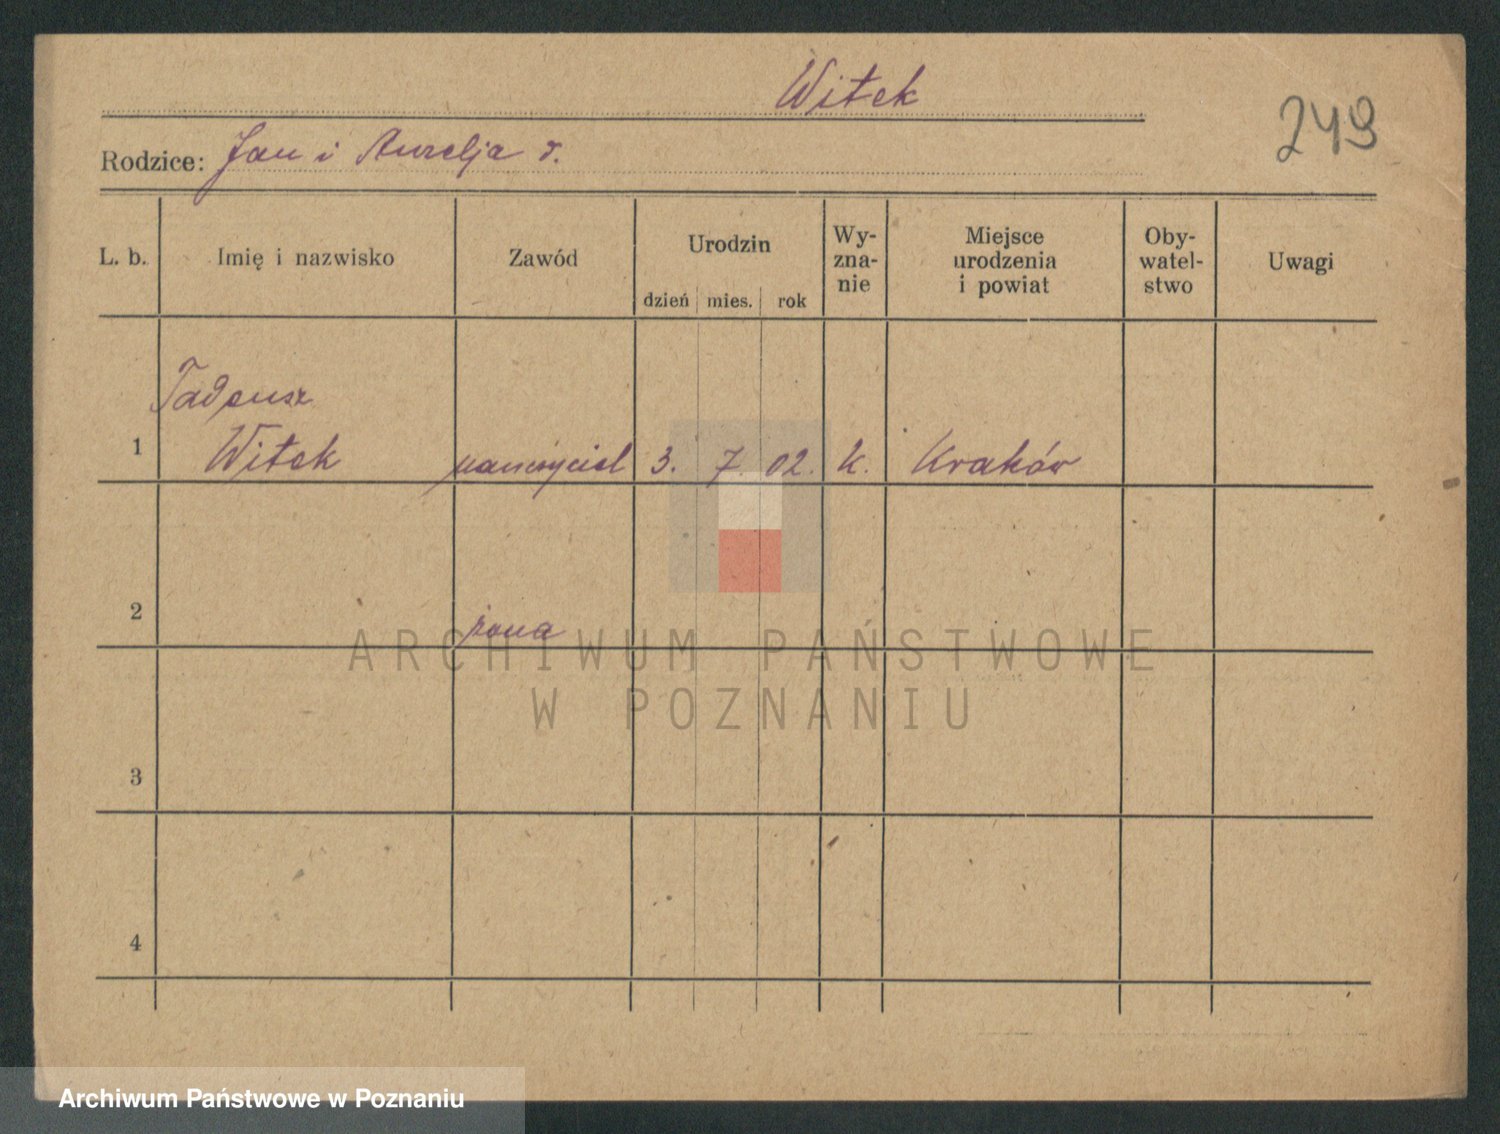 Witek
249
Rodzice: Jan i Aurelja r.
L. b. Imię i nazwisko Zawód Urodzin dzień mies. rok Wy-zna-nie Miejsce urodzenia i powiat Oby-watel-stwo Uwagi
Tadeusz
1 Witek nauczyciel 3. 7. 02. k. Kraków
2 żona
ARCHIWUM PAŃSTWOWE
W POZNANIU
3
4
Archiwum Państwowe w Poznaniu